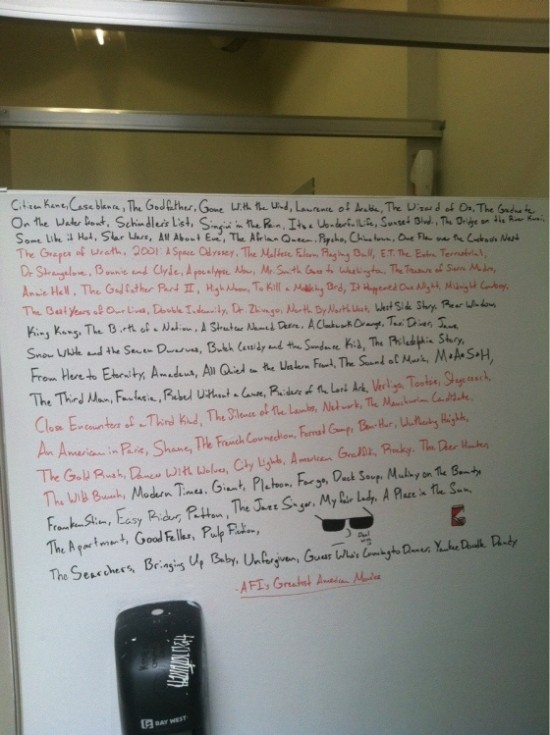 Citizen Kane, Casablanca, The Godfather, Gone With the Wind, Lawrence of Arabia, The Wizard of Oz, The Graduate
On the Waterfront, Schindler's List, Singin' in the Rain, It's a Wonderful Life, Sunset Blvd., The Bridge on the River Kwai,
Some Like it Hot, Star Wars, All About Eve, The African Queen, Psycho, Chinatown, One Flew over the Cuckoos Nest
The Grapes of Wrath, 2001: A Space Odyssey, The Maltese Falcon, Raging Bull, E.T. The Extra Terrestrial,
Dr. Strangelove, Bonnie and Clyde, Apocalypse Now, Mr. Smith Goes to Washington, The Treasure of Sierra Madre,
Annie Hall, The Godfather Part II, High Noon, To Kill a Mocking Bird, It Happened One Night, Midnight Cowboy,
The Best Years of Our Lives, Double Indemnity, Dr. Zhivago, North By North West, West Side Story, Rear Window,
King Kong, The Birth of a Nation, A Streetcar Named Desire, A Clockwork Orange, Taxi Driver, Jaws,
Snow White and the Seven Dwarves, Butch Cassidy and the Sundance Kid, The Philadelphia Story,
From Here to Eternity, Amadeus, All Quiet on the Western Front, The Sound of Music, M*A*S*H,
The Third Man, Fantasia, Rebel Without a Cause, Raiders of the Lost Ark, Vertigo, Tootsie, Stagecoach,
Close Encounters of a Third Kind, The Silence of the Lambs, Network, The Manchurian Candidate,
An American in Paris, Shane, The French Connection, Forrest Gump, Ben-Hur, Wuthering Heights,
The Gold Rush, Dances With Wolves, City Lights, American Graffiti, Rocky, The Deer Hunter,
The Wild Bunch, Modern Times, Giant, Platoon, Fargo, Duck Soup, Mutiny on The Bounty
Frankenstien, Easy Rider, Patton, The Jazz Singer, My fair Lady, A Place in The Sun,
The Apartment, Good Fellas, Pulp Fiction,
The Searchers, Bringing Up Baby, Unforgiven, Guess Who's Coming to Dinner, Yankee Doodle Dandy
-AFI's Greatest American Movies
RAY WEST